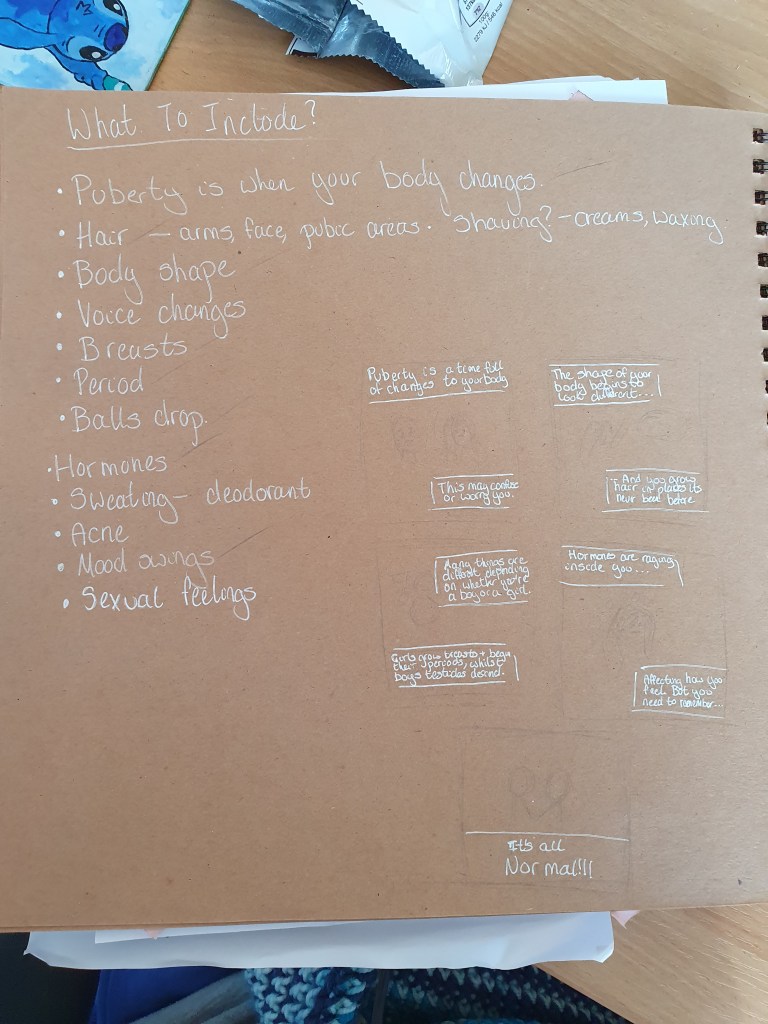 What To Include?
• Puberty is when your body changes.
• Hair — arms, face, pubic areas. Shaving? – creams, waxing
• Body shape
• Voice changes
• Breasts
• Period
• Balls drop.
• Hormones
• Sweating – deodorant
• Acne
• Mood swings
• Sexual feelings
Puberty is a time full
of changes to your body
This may confuse
or worry you.
The shape of your
body begins to
look different...
...And you grow
hair in places its
never been before
Many things are
different depending
on whether you're
a boy or a girl.
Girls grow breasts + begin
their periods, whilst
boys testicles descend.
Hormones are raging
inside you...
Affecting how you
feel. But you
need to remember...
It's all
Normal!!!